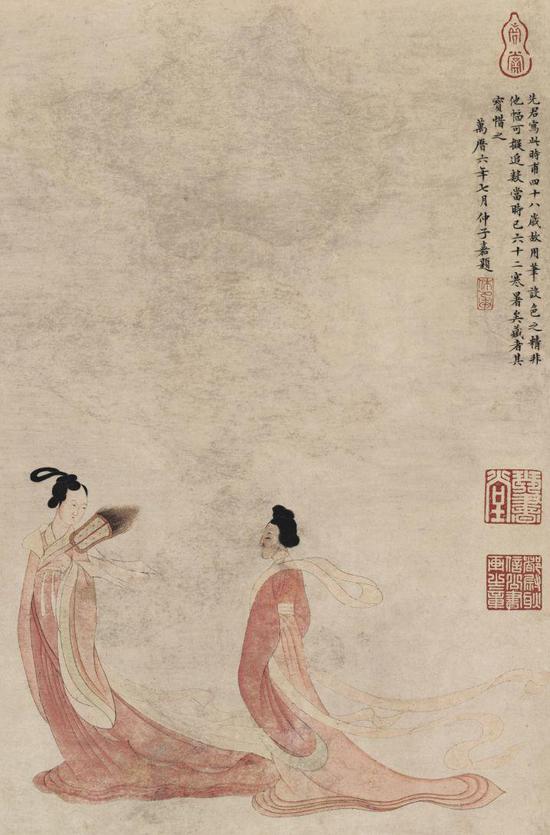 先君寫此時甫四十八歲故用筆設色之精非
他幅可擬追數當時已六十二寒暑矣藏者其
寶惜之
萬曆六年七月仲子嘉題